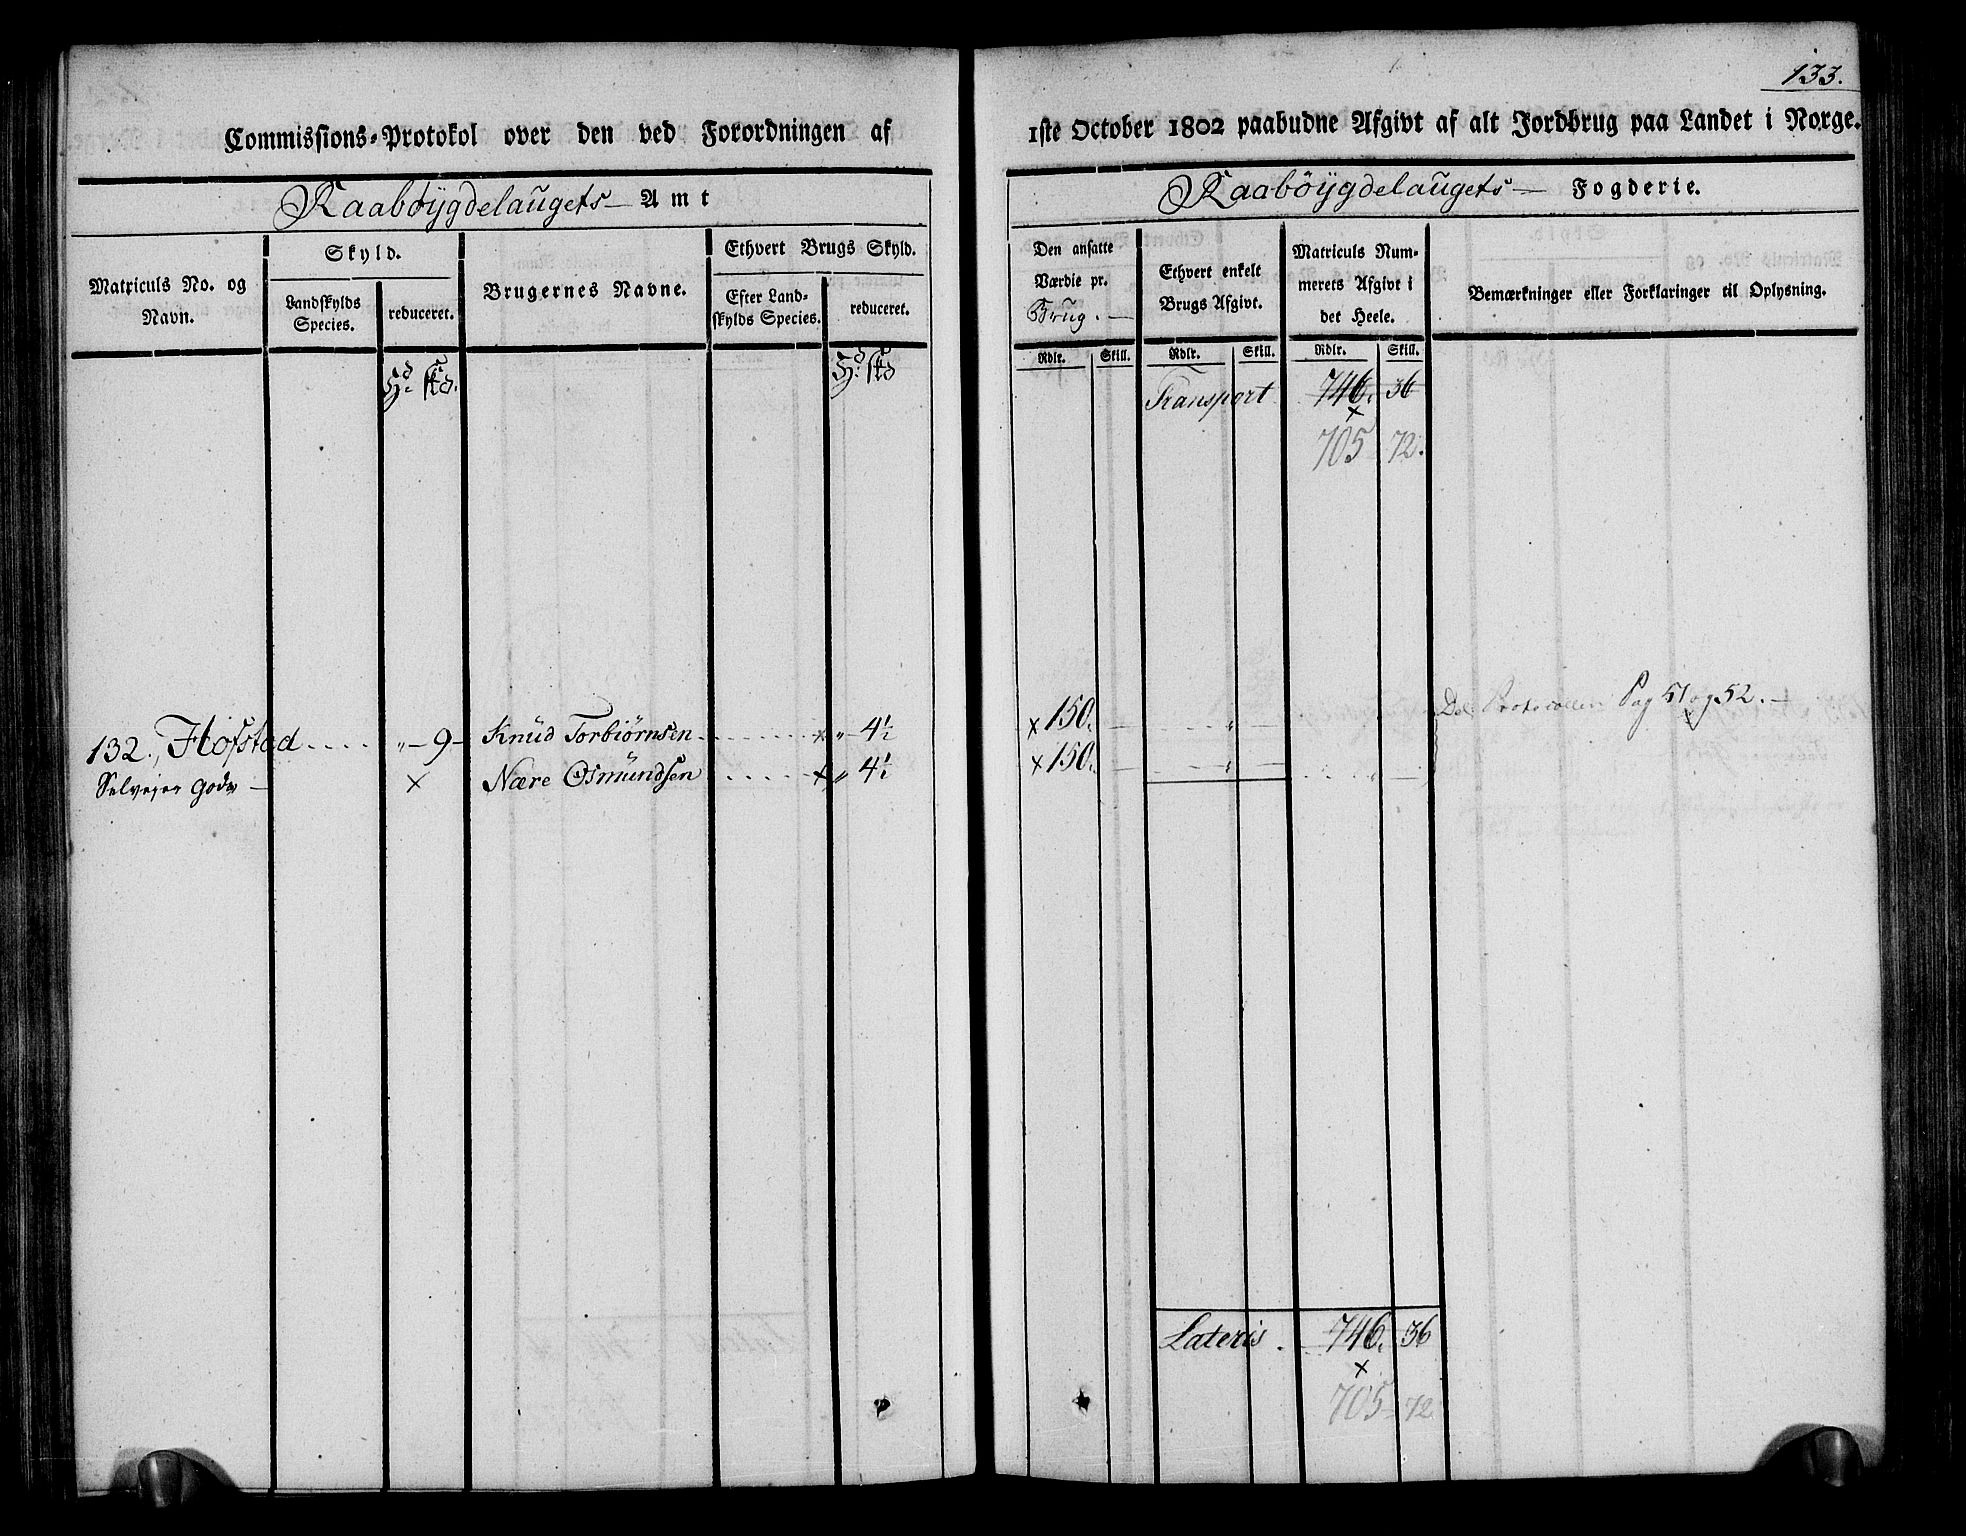 133.
Commissions-Protokol over den ved Forordningen af 1ste October 1802 paabudne Afgivt af alt Jordbrug paa Landet i Norge.
Raabøygdelaugets Amt
Raabøygdelaugets Fogderie.
Matriculs No. og Navn.
Skyld.
Landskylds Species.
reduceret.
Brugernes Navne.
Ethvert Brugs Skyld.
Efter Landskylds Species.
reduceret.
Den ansatte Værdie pr. Brug.
Ethvert enkelt Brugs Afgivt.
Matriculs Nummerets Afgivt i det Heele.
Bemærkninger eller Forklaringer til Oplysning.
Rdlr. Skill. Rdlr. Skill. Rdlr. Skill.
Transport 746. 36
705 72.
132., Hofstad „ - 9 - Knud Torbiørnsen × „ - 4½ × 150. „ Pag 51 og 52.
Selveier Gods × Nære Osmundsen × „ 4½ × 150. „
Lateris. 746. 36
705 - 72